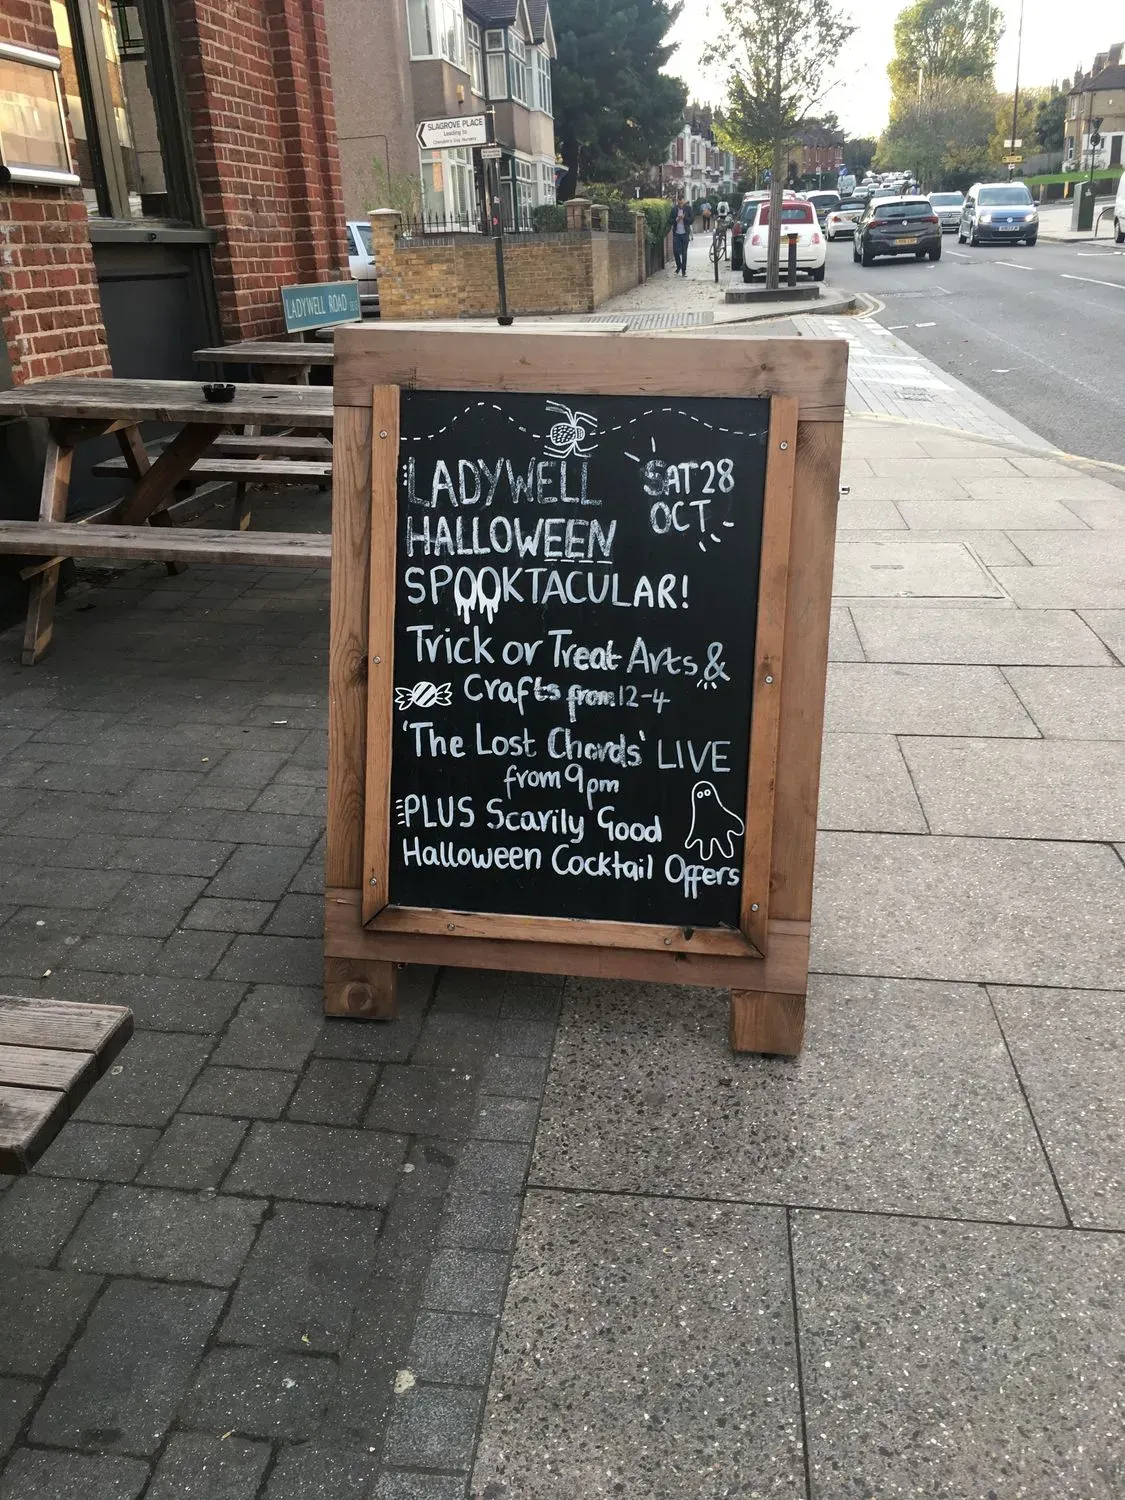 SLAGROVE PLACE
Leading to
LADYWELL ROAD
LADYWELL
HALLOWEEN
SPOOKTACULAR!
SAT 28
OCT
Trick or Treat Arts &
Crafts from 12-4
'The Lost Chords' LIVE
from 9pm
PLUS Scarily Good
Halloween Cocktail Offers